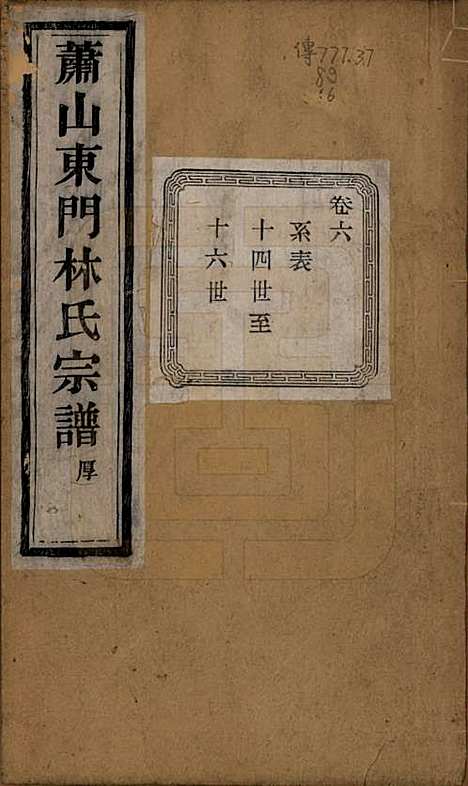 傳777.37
89
:6
卷六
系表
十四世至
十六世
蕭山東門林氏宗譜
厚